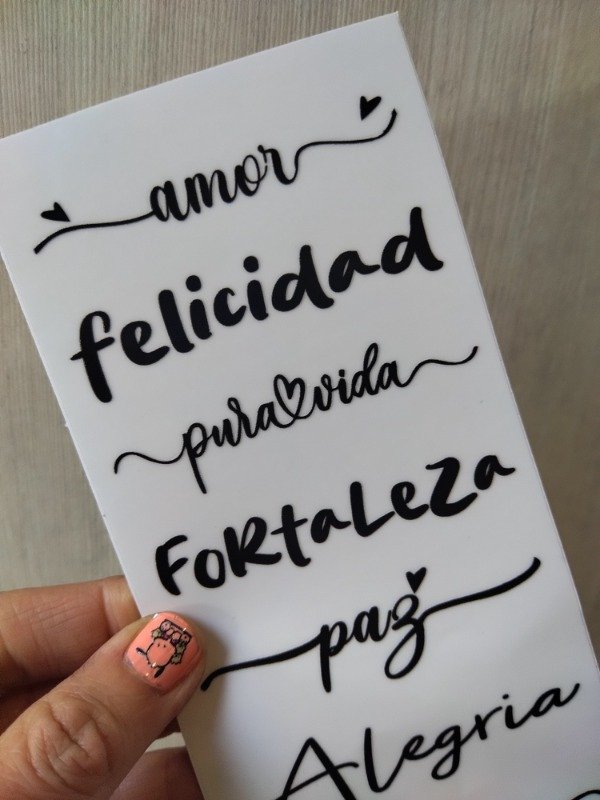 amor
felicidad
pura vida
FoRtaLeZa
paz
Alegria